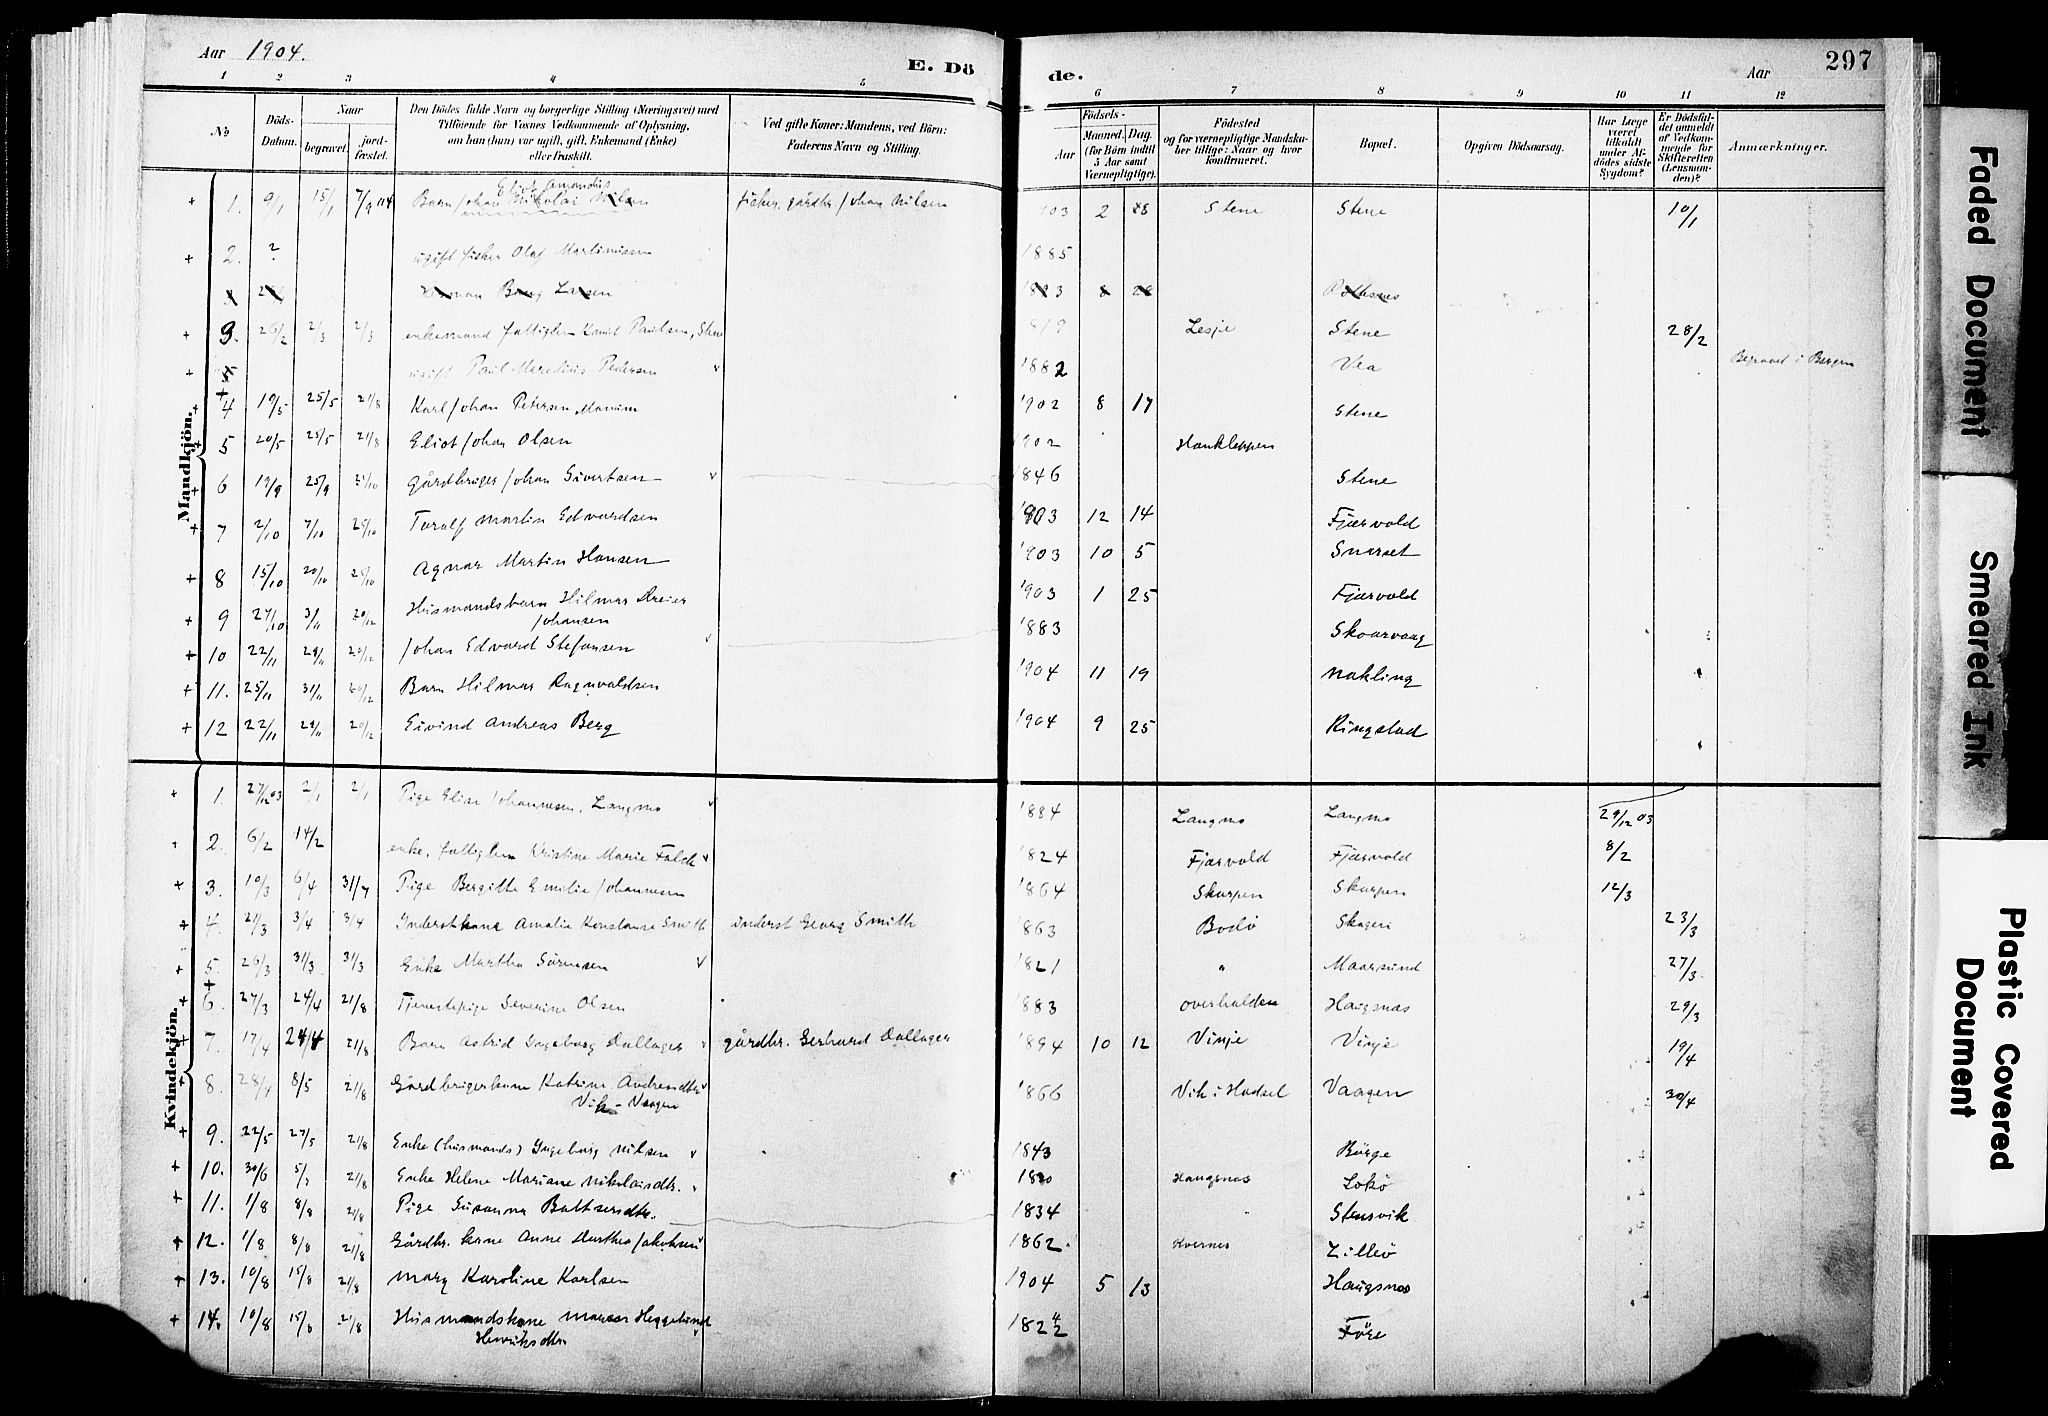 Aar 1904.
E. Dö
de.
Aar
297
1 2 3 4 5
6 7 8 9 10 11 12
№
Döds-Datum.
Naar
begravet.
jord-fæstet.
Den Dödes fulde Navn og borgerlige Stilling (Næringsvei) med
Tilföiende for Voxnes Vedkommende af Oplysning,
om han (hun) var ugift, gift, Enkemand (Enke)
eller fraskilt.
Ved gifte Koner: Mandens, ved Börn:
Faderens Navn og Stilling.
Födsels-
Aar
Maaned. Dag.
(for Børn indtil
5 Aar samt
Værnepligtige).
Födested
og for værnepligtige Mandska-
ber tillige: Naar og hvor
konfirmeret.
Bopæl.
Opgiven Dödsaarsag.
Har Læge
været
tilkaldt
under Af-
dødes sidste
Sygdom?
Er Dödsfal-
det anmeldt
af Vedkom-
mende for
Skifteretten
(Lensman-
den)?
Anmærkninger.
Mandkjön.
+ 1. 9/1 15/1 7/9 04 Barn Johan Nikolai Nilsen fisker, gårdbr. Johan Nilsen 903 2 28 Stene Stene 10/1
+ 2. ? ugift fisker Olaf Martinussen 1885
Larsen
+ 3. 26/2 2/3 2/3 enkemand fattiglem Knut Paulsen, Stene 819 Lesje Stene 28/2
+ ugift Paul Marelius Pedersen 1882 Vea Begravet i Bergen
+ 4 19/5 25/5 21/8 Karl Johan Petersen 1902 8 17 Stene
5 20/5 25/5 21/8 Eliot Johan Olsen 1902 Haukleppen
+ 6 19/9 25/9 gårdbruger Johan Sivertsen 1846 Stene
+ 7 2/10 7/10 Toralf Martin Edvardsen 1903 12 14 Fjærvold
+ 8 15/10 20/10 Agnar Martin Hansen 1903 10 5 Snarset
+ 9 27/10 3/11 20/12 Husmandsbarn Hilmar Dreier
Johansen 1903 1 25 Fjærvold
+ 10 22/11 29/11 20/12 Johan Edvard Stefansen 1883 Skoarvaag
+ 11. 25/11 31/11 20/12 Barn Hilmar Ragnvaldsen 1904 11 19 Nakling
+ 12 22/11 29/11 20/12 Eivind Andreas Berg 1904 9 25 Ringstad
Kvindekjön.
+ 1. 27/12 03 2/1 2/1 Pige Elise Johannesen, Langmo 1884 Langmo Langmo 29/12 03
2. 6/2 14/2 enke, fattiglem Kristine Marie Falch 1824 Fjærvold Fjærvold 8/2
+ 3. 10/3 6/4 31/7 Pige Bergitte Emilie Johannesen 1864 Skarpen Skarpen 12/3
+ 4. 21/3 3/4 3/4 Inderstkone Amalie Konstanse Smith inderst Georg Smith 1863 Bodö Skagen 23/3
+ 5. 26/3 31/3 31/3 Enke Martha Sörensen 1821 " Maarsund 27/3
+ 6. 27/3 24/4 21/8 Tjenestepige Severine Olsen 1883 Overhalden Haugsnes 29/3
+ 7. 17/4 24/4 21/8 Barn Astrid Ingeborg Dallager gårdbr. Gerhard Dallager 1894 10 12 Vinje Vinje 19/4
+ 8. 28/4 8/5 21/8 Gårdbrugerkone Katrine Andreasdtr
Vik - Vaagen 1866 Vik i Hadsel Vaagen 30/4
+ 9. 22/5 27/5 21/8 Enke (husmands) Ingeborg Nilsen 1843 Börge
+ 10. 30/6 5/7 21/8 Enke Helene Mariane Nikolaisdtr. Haugsnes Lokö
+ 11. 1/8 8/8 21/8 Pige Susanna Baltsersdtr. 1834 " Steusvik
+ 12. 1/8 8/8 21/8 Gårdbr. kone Anne Dorthea Jakobsen 1862 Kvernes Lilleö
+ 13. 10/8 15/8 21/8 Mary Karoline Karlsen 1904 5 13 Haugsnes
+ 14. 10/8 15/8 21/8 Husmandskone Maren Heggelund
Henriksdtr 1822 Före
Faded Document
Smeared Ink
Plastic Covered
Document